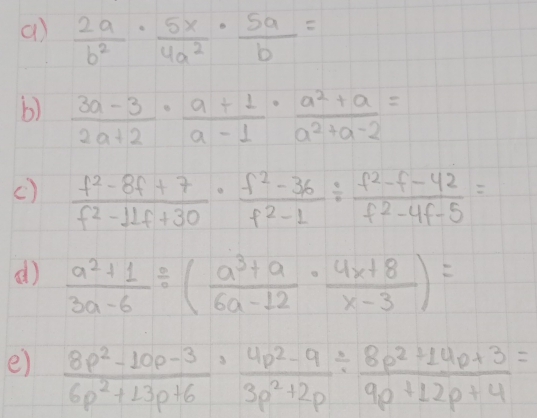 a) 2a/b² · 5x/4a² · 5a/b =
b) 3a-3/2a+2 · a+1/a-1 · a²+a/a²+a-2 =
c) f²-8f+7/f²-11f+30 · f²-36/f²-1 ÷ f²-f-42/f²-4f-5 =
d) a²+1/3a-6 ÷ (a³+a/6a-12 · 4x+8/x-3) =
e) 8p²-10p-3/6p²+13p+6 · 4p²-9/3p²+2p ÷ 8p²+14p+3/9p+12p+4 =